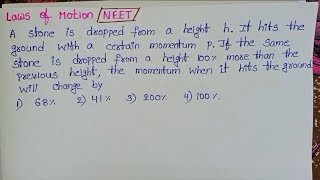 Laws of Motion / NEET /
A stone is dropped from a height h. It hits the
ground with a certain momentum P. If the same
stone is dropped from a height 100% more than the
previous height, the momentum when it hits the ground
will change by
1) 68% 2) 41% 3) 200% 4) 100%.